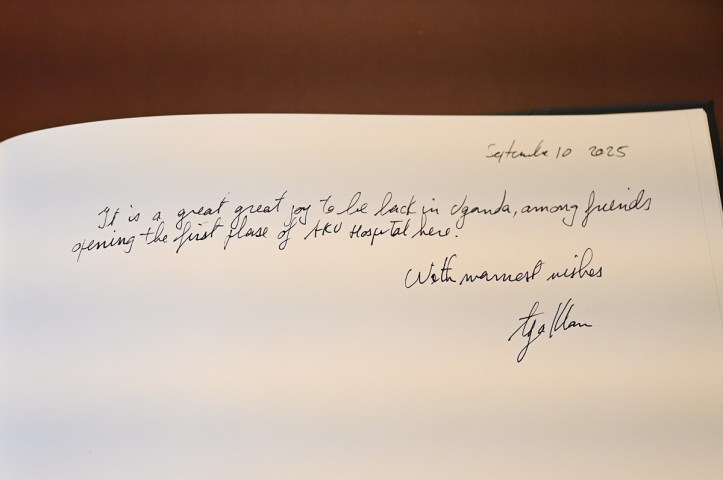 September 10 2025
It is a great great joy to be back in Uganda, among friends
opening the first phase of AKU Hospital here.
With warmest wishes
Aga Khan